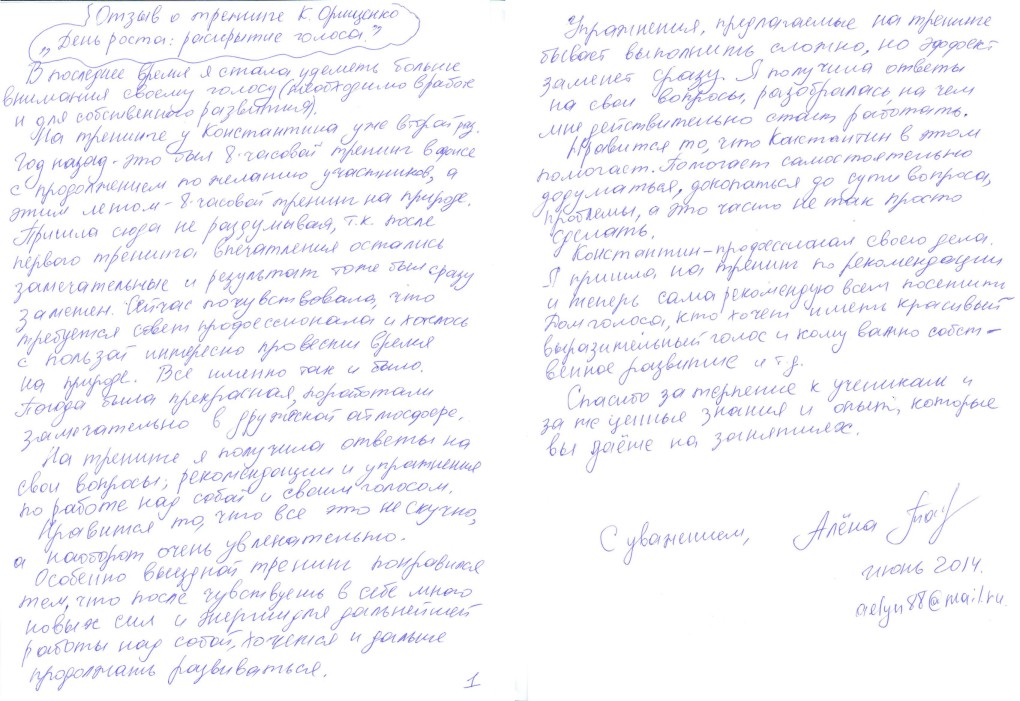 Отзыв о тренинге К. Орищенко
„День роста: раскрытие голоса"
В последнее время я стала уделять больше
внимания своему голосу (необходимо в работе
и для собственного развития).
На тренинге у Константина уже второй раз.
Год назад - это был 8-часовой тренинг в офисе
с продолжением по желанию участников, а
этим летом - 8-часовой тренинг на природе.
Пришла сюда не раздумывая, т.к. после
первого тренинга впечатления остались
замечательные и результат тоже был сразу
заметен. Сейчас почувствовала, что
требуется совет профессионала и хотелось
с пользой интересно провести время
на природе. Всё именно так и было.
Погода была прекрасная, поработали
замечательно в дружеской атмосфере.
На тренинге я получила ответы на
свои вопросы, рекомендации и упражнения
по работе над собой и своим голосом.
Нравится то, что все это не скучно,
а наоборот очень увлекательно.
Особенно выездной тренинг понравился
тем, что после чувствуешь в себе много
новых сил и энергии для дальнейшей
работы над собой, хочется и дальше
продолжать развиваться.
1
Упражнения, предлагаемые на тренинге
бывает выполнить сложно, но эффект
заметен сразу. Я получила ответы
на свои вопросы, разобралась на чем
мне действительно стоит работать.
Нравится то, что Константин в этом
помогает. Помогает самостоятельно
додуматься, докопаться до сути вопроса,
проблемы, а это часто не так просто
сделать.
Константин - профессионал своего дела.
Я пришла на тренинг по рекомендации
и теперь сама рекомендую всем посетить
Дом голоса, кто хочет иметь красивый
выразительный голос и кому важно собст-
венное развитие и т.д.
Спасибо за терпение к ученикам и
за те ценные знания и опыт, которые
вы даёте на занятиях.
С уважением, Алёна
июнь 2014.
aelyn88@mail.ru